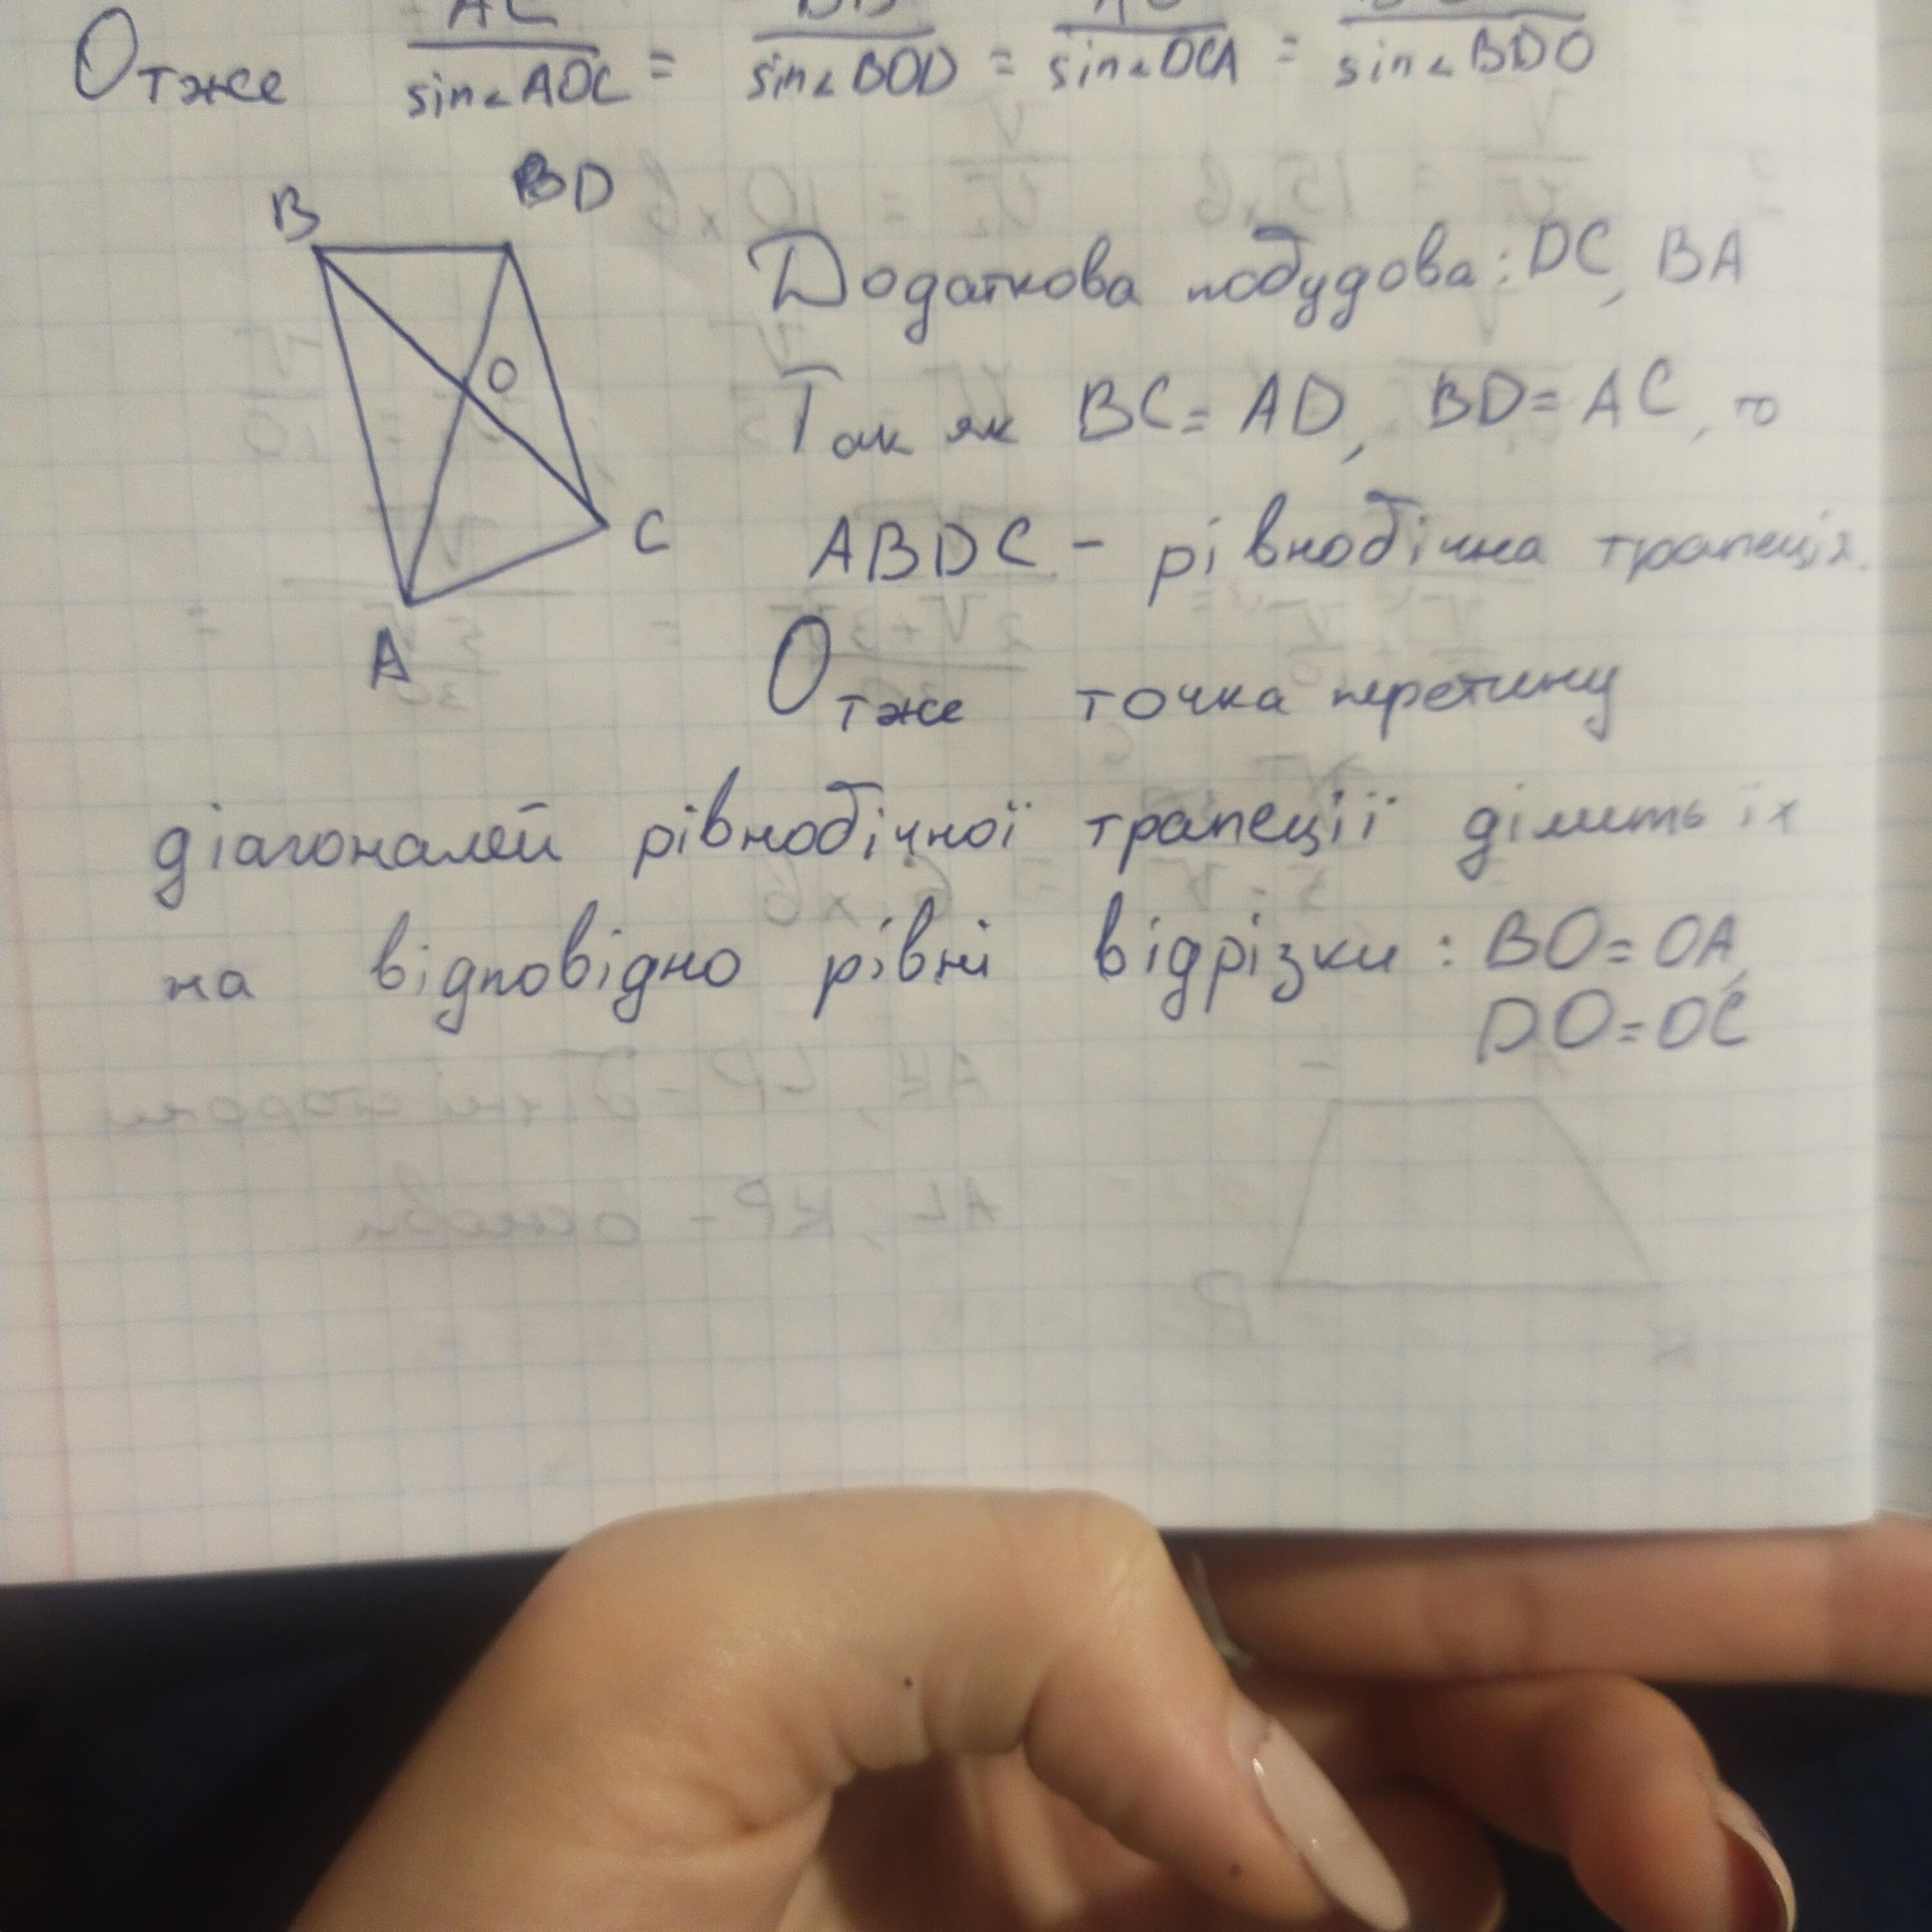 Отже AC/sin∠AOC = /sin∠BOD = /sin∠OCA = /sin∠BDO
B BD
O
C
A
Додаткова побудова: DC, BA
Так як BC = AD, BD = AC, то
ABDC - рівнобічна трапеція.
Отже точка перетину
діагоналей рівнобічної трапеції ділить їх
на відповідно рівні відрізки: BO = OA,
DO = OC